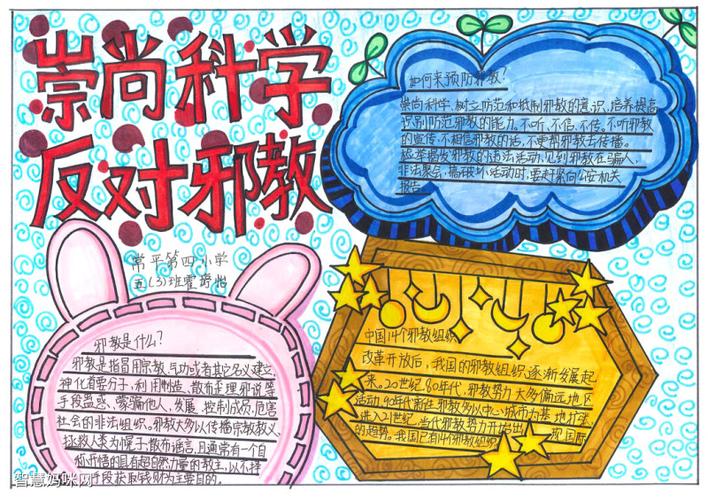 崇尚科学
反对邪教
常平第四小学
五(3)班
如何来预防邪教?
崇尚科学,树立防范和抵制邪教的意识,培养提高
识别防范邪教的能力。不听、不信、不传。不听邪教
的宣传,不相信邪教的话,不要帮邪教去传播。
检举揭发邪教的违法活动,见到邪教在骗人、
非法聚会,搞破坏活动时,要赶紧向公安机关
报告。
邪教是什么?
邪教是指冒用宗教、气功或者其它名义建立,
神化首要分子,利用制造、散布歪理邪说等
手段蛊惑、蒙骗他人,发展、控制成员,危害
社会的非法组织。邪教大多以传播宗教教义、
拯救人类为幌子,散布谣言,且通常有一个自
称开悟的具有超自然力量的教主,以不择
手段获取钱财为主要目的。
中国14个邪教组织
改革开放后,我国的邪教组织逐渐发展起
来。20世纪80年代,邪教势力大多偏远地区
活动,90年代新生邪教多以中心城市为基地扩张
进入21世纪,当代邪教势力开始出现国际
的趋势。我国已有14个邪教组织
智慧妈咪网